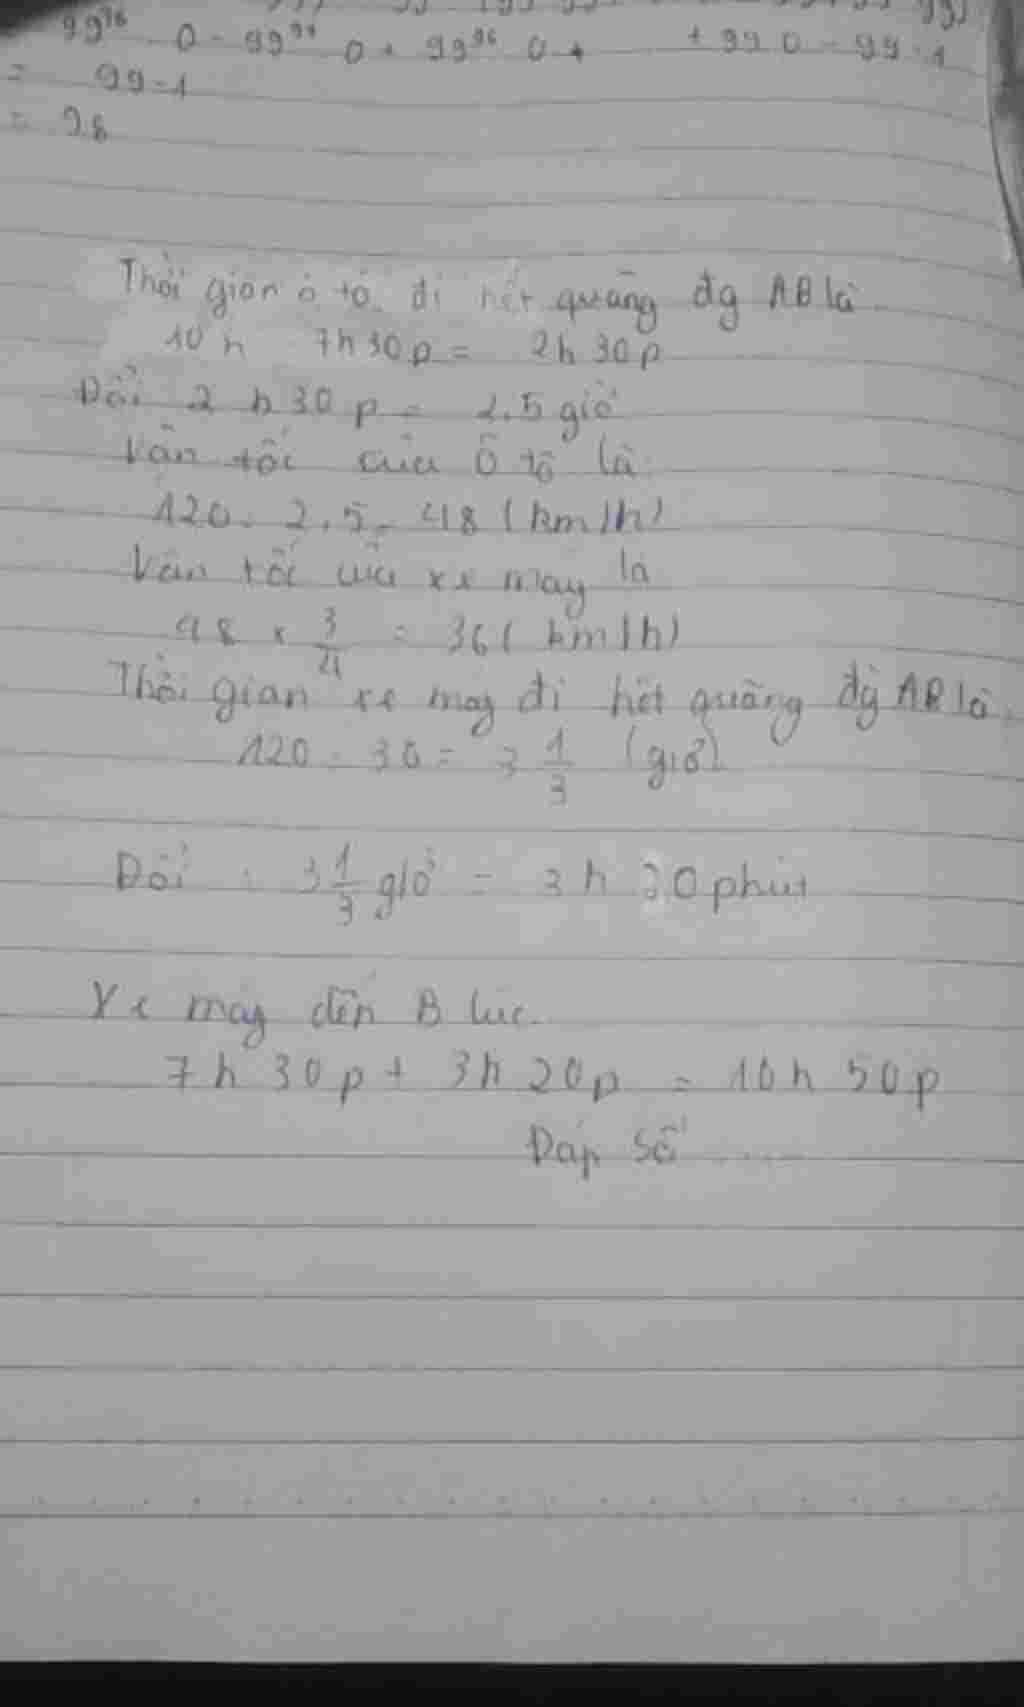 99⁹⁶ 0 - 99⁹⁷ 0 + 99⁹⁶ 0 + + 99 0 - 99 - 1
= 99-1
= 98
Thời gian ô tô đi hết quãng đg AB là
10 h 7h 30p = 2h 30p
Đổi 2 h 30 p = 2,5 giờ
Vận tốc của ô tô là
120 : 2,5 = 48 (km/h)
Vận tốc của xe máy là
48 × 3/4 = 36 (km/h)
Thời gian xe máy đi hết quãng đg AB là
120 : 36 = 3 1/3 (giờ)
Đổi : 3 1/3 giờ = 3 h 20 phút
Xe máy đến B lúc
7h 30p + 3h 20p = 10h 50p
Đáp số ......